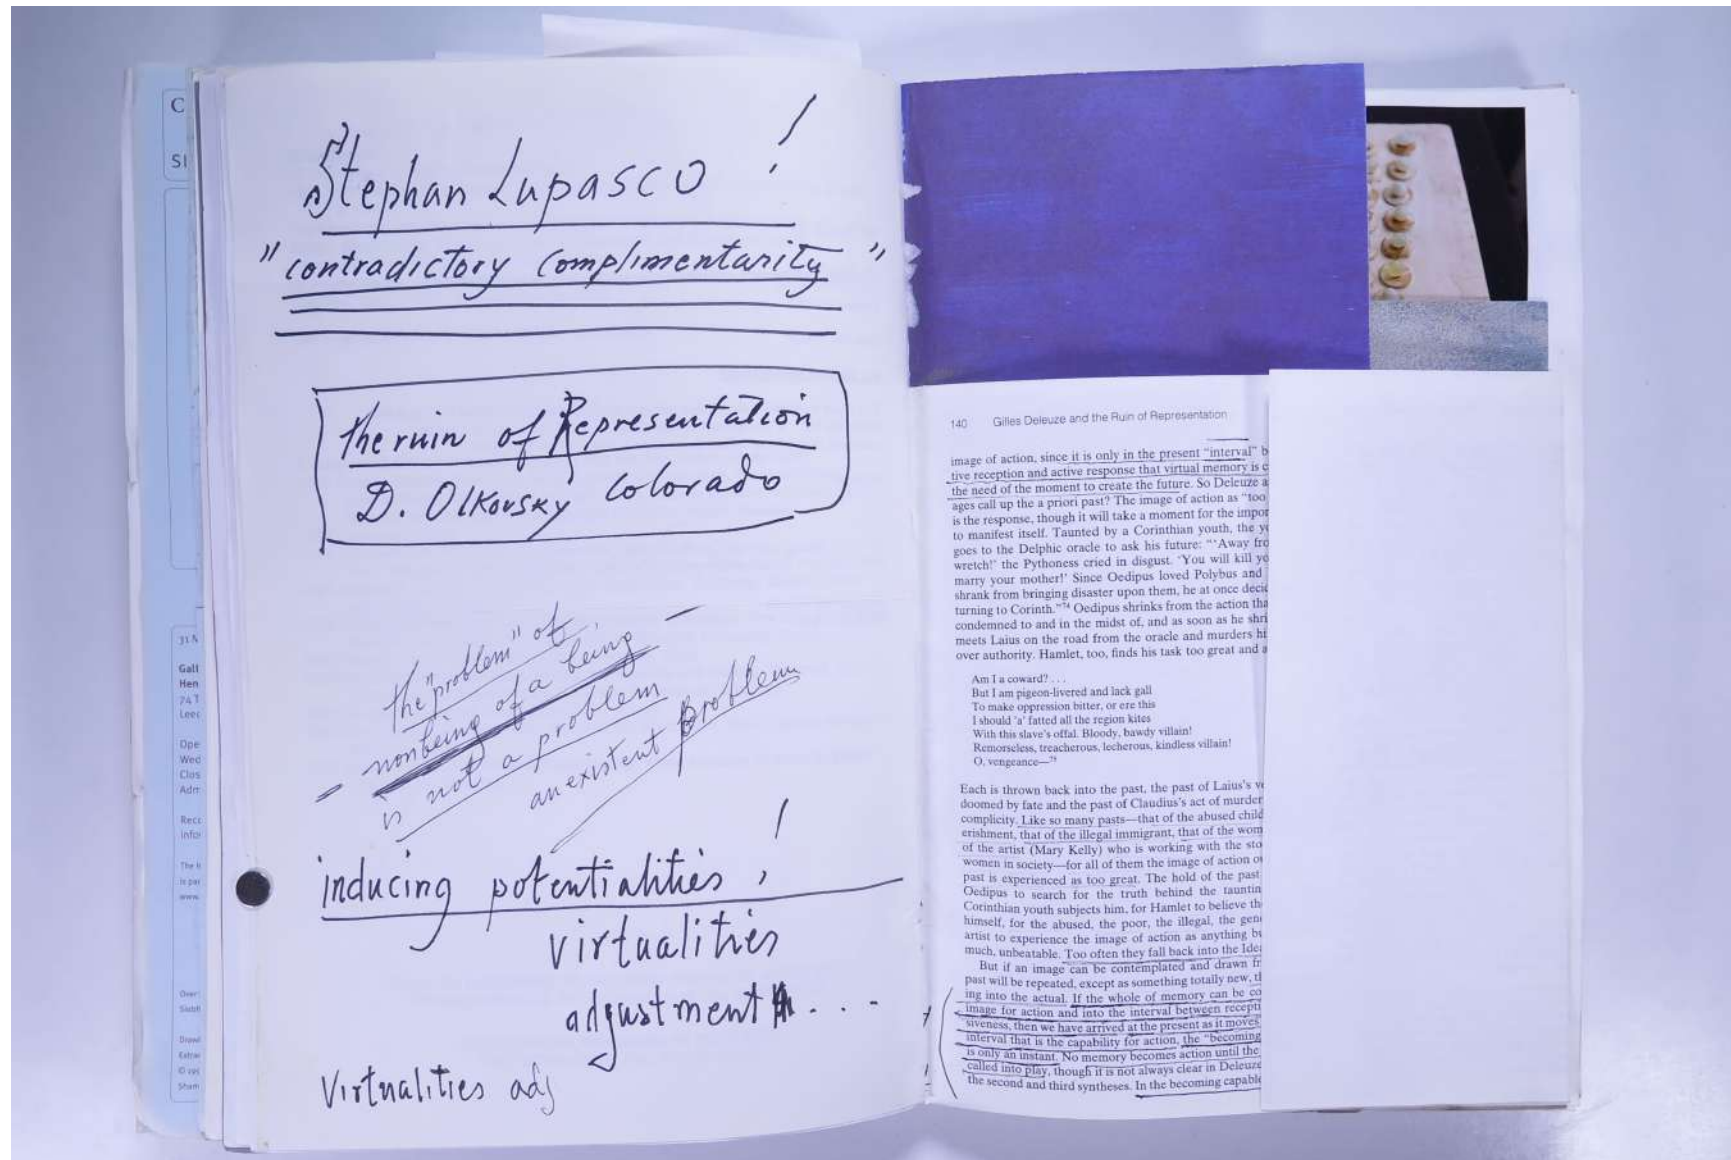 C
SI
31
Gall
Hen
74 T
Leec
Ope
Wed
Clos
Adm
Reco
infor
The H
is par
www.
Over
Sidd
Drawi
Extrac
Sham
Stephan Lupasco !
"contradictory complimentarity"
the ruin of Representation
D. Olkovsky Colorado
the "problem" of
nonbeing of a being
is not a problem
an existent problem
inducing potentialities, !
virtualities
adjustment ...
Virtualities adj
140 Gilles Deleuze and the Ruin of Representation
image of action, since it is only in the present "interval" b
tive reception and active response that virtual memory is c
the need of the moment to create the future. So Deleuze a
ages call up the a priori past? The image of action as "too
is the response, though it will take a moment for the impor
to manifest itself. Taunted by a Corinthian youth, the yo
goes to the Delphic oracle to ask his future: "'Away fro
wretch!' the Pythoness cried in disgust. 'You will kill yo
marry your mother!' Since Oedipus loved Polybus and
shrank from bringing disaster upon them, he at once decid
turning to Corinth."74 Oedipus shrinks from the action tha
condemned to and in the midst of, and as soon as he shri
meets Laius on the road from the oracle and murders hi
over authority. Hamlet, too, finds his task too great and a
Am I a coward? . . .
But I am pigeon-livered and lack gall
To make oppression bitter, or ere this
I should 'a' fatted all the region kites
With this slave's offal. Bloody, bawdy villain!
Remorseless, treacherous, lecherous, kindless villain!
O, vengeance—75
Each is thrown back into the past, the past of Laius's v
doomed by fate and the past of Claudius's act of murder
complicity. Like so many pasts—that of the abused child
erishment, that of the illegal immigrant, that of the wom
of the artist (Mary Kelly) who is working with the sto
women in society—for all of them the image of action o
past is experienced as too great. The hold of the past
Oedipus to search for the truth behind the tauntin
Corinthian youth subjects him, for Hamlet to believe th
himself, for the abused, the poor, the illegal, the gen
artist to experience the image of action as anything bu
much, unbeatable. Too often they fall back into the Idea
But if an image can be contemplated and drawn fr
past will be repeated, except as something totally new, t
ing into the actual. If the whole of memory can be co
image for action and into the interval between recepti
siveness, then we have arrived at the present as it moves
interval that is the capability for action, the "becoming
is only an instant. No memory becomes action until the
called into play, though it is not always clear in Deleuze
the second and third syntheses. In the becoming capable